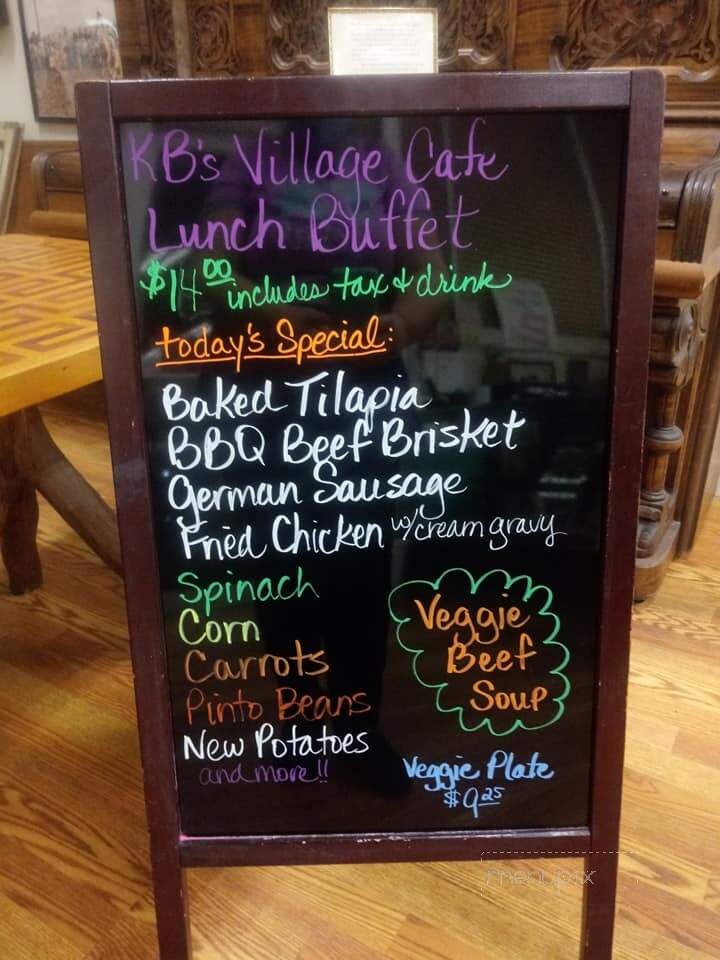 KB's Village Cafe
Lunch Buffet
$14.00 includes tax & drink
today's Special:
Baked Tilapia
BBQ Beef Brisket
German Sausage
Fried Chicken w/cream gravy
Spinach
Corn
Carrots
Pinto Beans
New Potatoes
and more!!
Veggie
Beef
Soup
Veggie Plate
$9.25
menupix